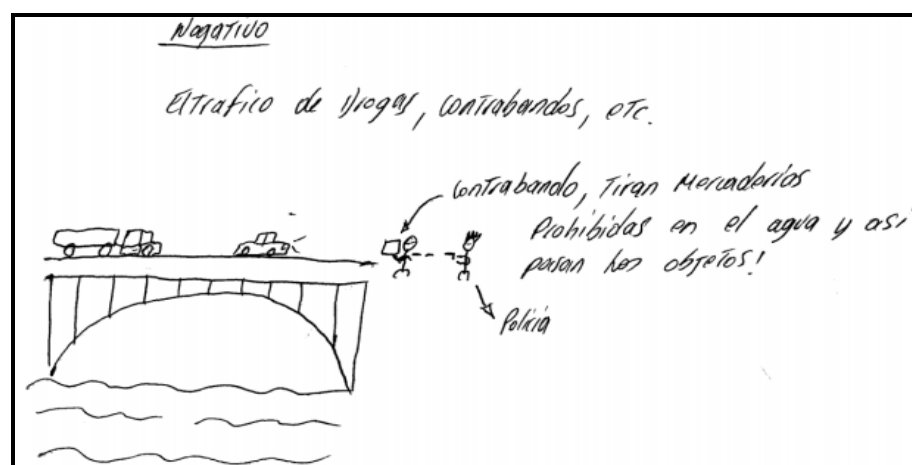 Negativo
El trafico de Drogas, contrabandos, etc.
contrabando, tiran Mercaderias
Prohibidas en el agua y asi
pasan los objetos!
Policia